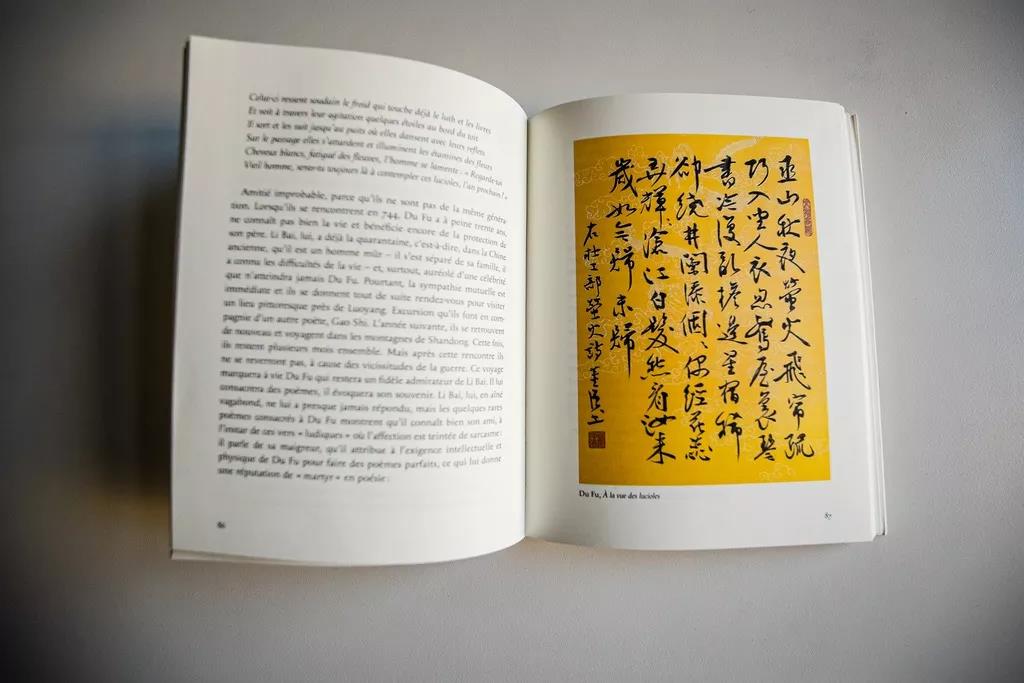 Celui-ci ressent soudain le froid qui touche déjà le luth et les livres
Et voit à travers leur agitation quelques étoiles au bord du toit
Il sort et les suit jusqu'au puits où elles dansent avec leurs reflets
Sur le passage elles s'attardent et illuminent les étamines des fleurs
Cheveux blancs, fatigué des fleuves, l'homme se lamente : « Regarde-toi
Vieil homme, seras-tu toujours là à contempler ces lucioles, l'an prochain ? »
Amitié improbable, parce qu'ils ne sont pas de la même généra-
tion. Lorsqu'ils se rencontrent en 744, Du Fu a à peine trente ans,
ne connaît pas bien la vie et bénéficie encore de la protection de
son père. Li Bai, lui, a déjà la quarantaine, c'est-à-dire, dans la Chine
ancienne, qu'il est un homme mûr – il s'est séparé de sa famille, il
a connu les difficultés de la vie – et, surtout, auréolé d'une célébrité
que n'atteindra jamais Du Fu. Pourtant, la sympathie mutuelle est
immédiate et ils se donnent tout de suite rendez-vous pour visiter
un lieu pittoresque près de Luoyang. Excursion qu'ils font en com-
pagnie d'un autre poète, Gao Shi. L'année suivante, ils se retrouvent
de nouveau et voyagent dans les montagnes de Shandong. Cette fois,
ils restent plusieurs mois ensemble. Mais après cette rencontre ils
ne se reverront pas, à cause des vicissitudes de la guerre. Ce voyage
marquera à vie Du Fu qui restera un fidèle admirateur de Li Bai. Il lui
consacrera des poèmes, il évoquera son souvenir. Li Bai, lui, en aîné
vagabond, ne lui a presque jamais répondu, mais les quelques rares
poèmes consacrés à Du Fu montrent qu'il connaît bien son ami, à
l'instar de ces vers « ludiques » où l'affection est teintée de sarcasme :
il parle de sa maigreur, qu'il attribue à l'exigence intellectuelle et
physique de Du Fu pour faire des poèmes parfaits, ce qui lui donne
une réputation de « martyr » en poésie :
86
巫山秋夜螢火飛帘疏
巧入坐人衣忽驚屋裏琴
書冷復亂檐邊星宿稀
卻繞井闌添個〻偶經花蕊
弄輝滄江白髮愁看汝來
歲如今歸未歸
右杜工部螢火詩
Du Fu, À la vue des lucioles
87